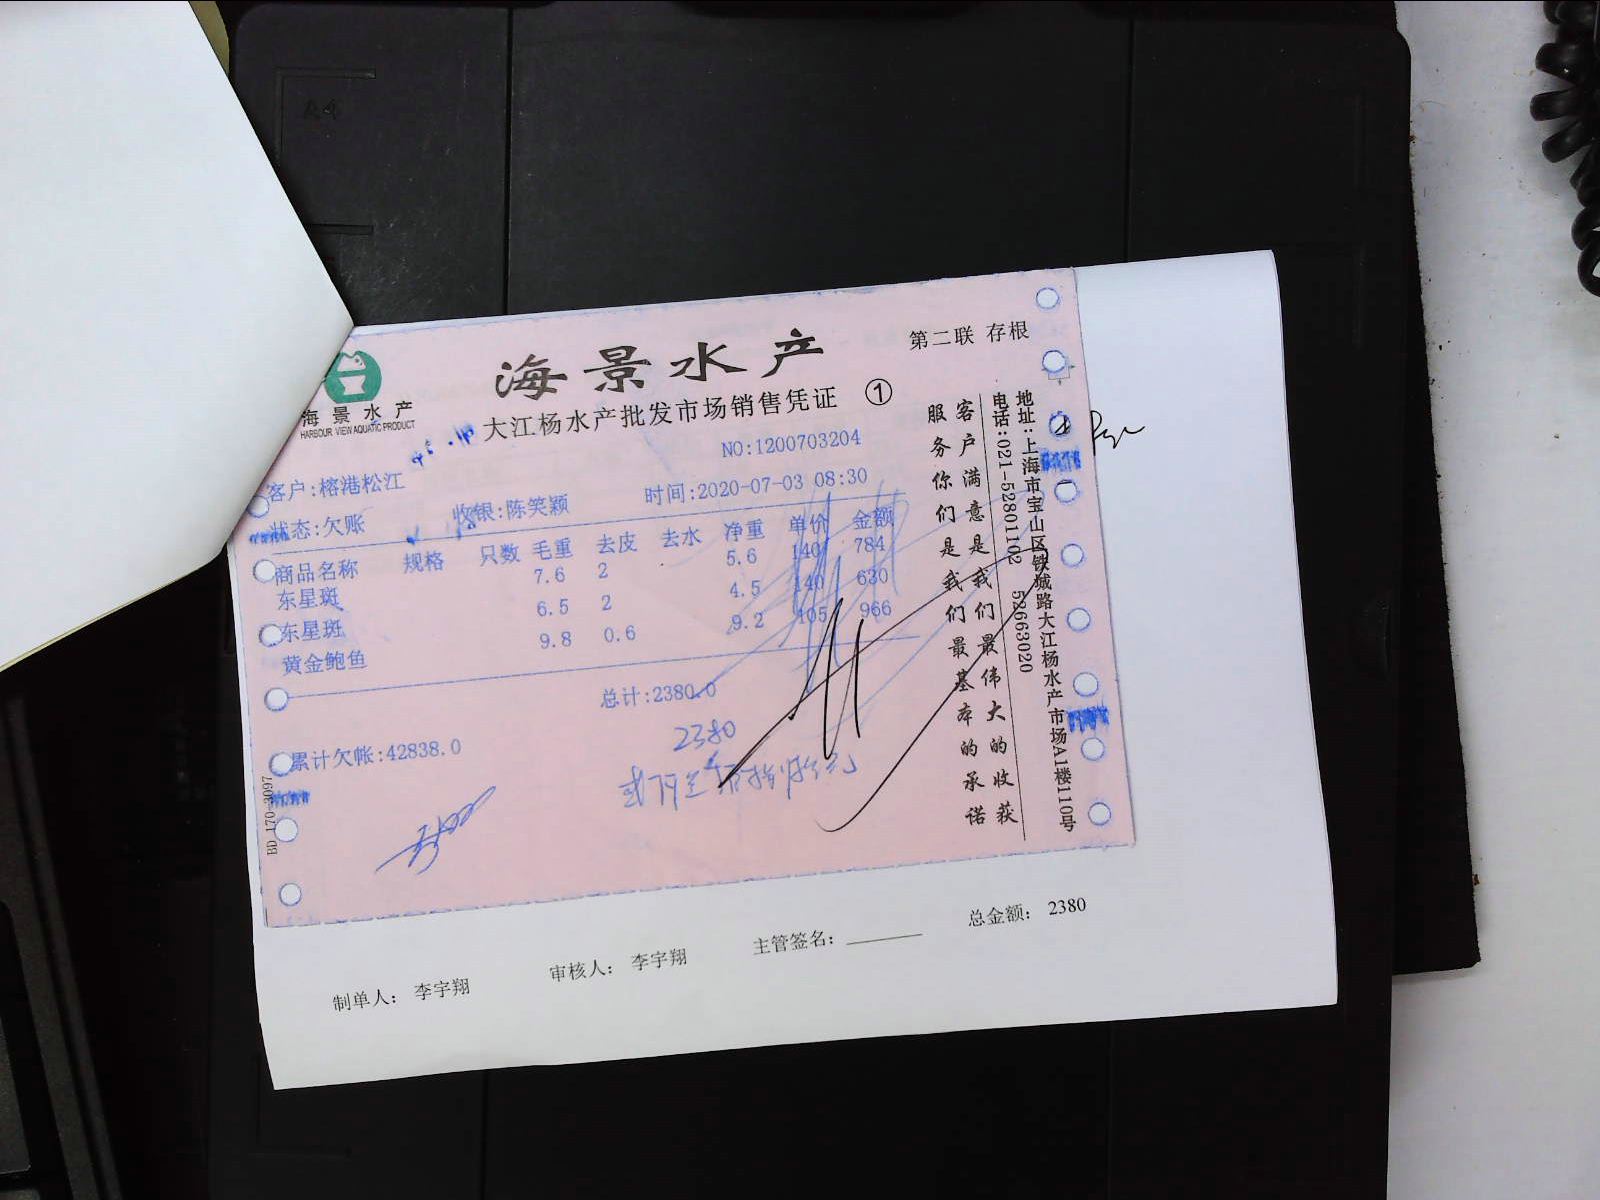 第二联 存根
海景水产
海景水产
HARBOUR VIEW AQUATIC PRODUCT
大江杨水产批发市场销售凭证 ①
NO:1200703204
客户:榕港松江
时间:2020-07-03 08:30
状态:欠账 收银:陈笑颖
商品名称 规格 只数 毛重 去皮 去水 净重 单价 金额
东星斑 7.6 2 5.6 140 784
东星斑 6.5 2 4.5 140 630
黄金鲍鱼 9.8 0.6 9.2 105 966
总计:2380.0
2380
累计欠帐:42838.0
客户满意是我们最伟大的收获
服务你们是我们最基本的承诺
地址:上海市宝山区铁城路大江杨水产市场A1楼110号
电话:021-52801102 52663020
制单人: 李宇翔 审核人: 李宇翔 主管签名: 总金额: 2380